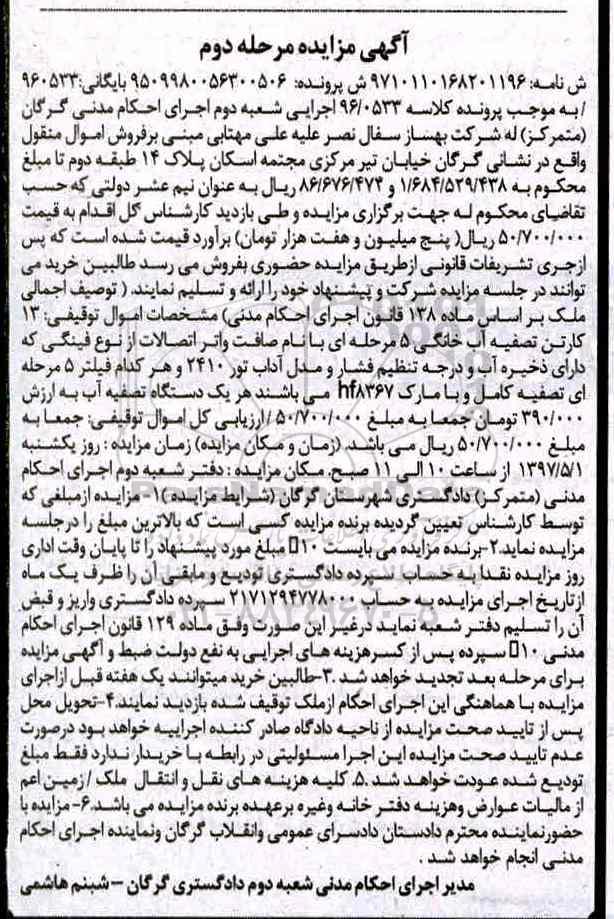 آگهی مزایده مرحله دوم
ش نامه: ۹۷۱۰۱۱۰۱۶۸۲۰۱۱۹۶ ش پرونده: ۹۵۰۹۹۸۰۰۵۶۳۰۰۵۰۶ بایگانی: ۹۶۰۵۳۳
/ به موجب پرونده کلاسه ۹۶/۰۵۳۳ اجرایی شعبه دوم اجرای احکام مدنی گرگان
(متمرکز) له شرکت بهساز سفال نصر علیه علی مهتابی مبنی برفروش اموال منقول
واقع در نشانی گرگان خیابان تیر مرکزی مجتمه اسکان پلاک ۱۴ طبقه دوم تا مبلغ
محکوم به ۱/۶۸۴/۵۲۹/۴۳۸ و ۸۶/۶۷۶/۴۷۴ ریال به عنوان نیم عشر دولتی که حسب
تقاضای محکوم له جهت برگزاری مزایده و طی بازدید کارشناس گل اقدام به قیمت
۵۰/۷۰۰/۰۰۰ ریال( پنج میلیون و هفت هزار تومان) برآورد قیمت شده است که پس
ازجری تشریفات قانونی ازطریق مزایده حضوری بفروش می رسد طالبین خرید می
توانند در جلسه مزایده شرکت و پیشنهاد خود را ارائه و تسلیم نمایند. ( توصیف اجمالی
ملک بر اساس ماده ۱۳۸ قانون اجرای احکام مدنی) مشخصات اموال توقیفی: ۱۳
کارتن تصفیه آب خانگی ۵ مرحله ای با نام صافت واتر اتصالات از نوع فینگی که
دارای ذخیره آب و درجه تنظیم فشار و مدل آداب تور ۲۴۱۰ و هر کدام فیلتر ۵ مرحله
ای تصفیه کامل و با مارک hf۸۳۶۷ می باشند هر یک دستگاه تصفیه آب به ارزش
۳۹۰/۰۰۰ تومان جمعا به مبلغ ۵۰/۷۰۰/۰۰۰ / ارزیابی کل اموال توقیفی: جمعا به
مبلغ ۵۰/۷۰۰/۰۰۰ ریال می باشد. (زمان و مکان مزایده) زمان مزایده : روز یکشنبه
۱۳۹۷/۵/۱ از ساعت ۱۰ الی ۱۱ صبح. مکان مزایده : دفتر شعبه دوم اجرای احکام
مدنی (متمرکز) دادگستری شهرستان گرگان (شرایط مزایده )۱- مزایده ازمبلغی که
توسط کارشناس تعیین گردیده برنده مزایده کسی است که بالاترین مبلغ را درجلسه
مزایده نماید.۲-برنده مزایده می بایست ۱۰▯ مبلغ مورد پیشنهاد را تا پایان وقت اداری
روز مزایده نقدا به حساب سپرده دادگستری تودیع و مابقی آن را ظرف یک ماه
ازتاریخ اجرای مزایده به حساب ۲۱۷۱۲۹۴۷۷۸۰۰۰ سپرده دادگستری واریز و قبض
آن را تسلیم دفتر شعبه نماید درغیر این صورت وفق ماده ۱۲۹ قانون اجرای احکام
مدنی ۱۰▯ سپرده پس از کسرهزینه های اجرایی به نفع دولت ضبط و آگهی مزایده
برای مرحله بعد تجدید خواهد شد .۳-طالبین خرید میتوانند یک هفته قبل ازاجرای
مزایده با هماهنگی این اجرای احکام ازملک توقیف شده بازدید نمایند.۴-تحویل محل
پس از تایید صحت مزایده از ناحیه دادگاه صادر کننده اجراییه خواهد بود درصورت
عدم تایید صحت مزایده این اجرا مسئولیتی در رابطه با خریدار ندارد فقط مبلغ
تودیع شده عودت خواهد شد .۵. کلیه هزینه های نقل و انتقال ملک / زمین اعم
از مالیات عوارض وهزینه دفتر خانه وغیره برعهده برنده مزایده می باشد.۶- مزایده با
حضورنماینده محترم دادستان دادسرای عمومی وانقلاب گرگان ونماینده اجرای احکام
مدنی انجام خواهد شد .
مدیر اجرای احکام مدنی شعبه دوم دادگستری گرگان – شبنم هاشمی